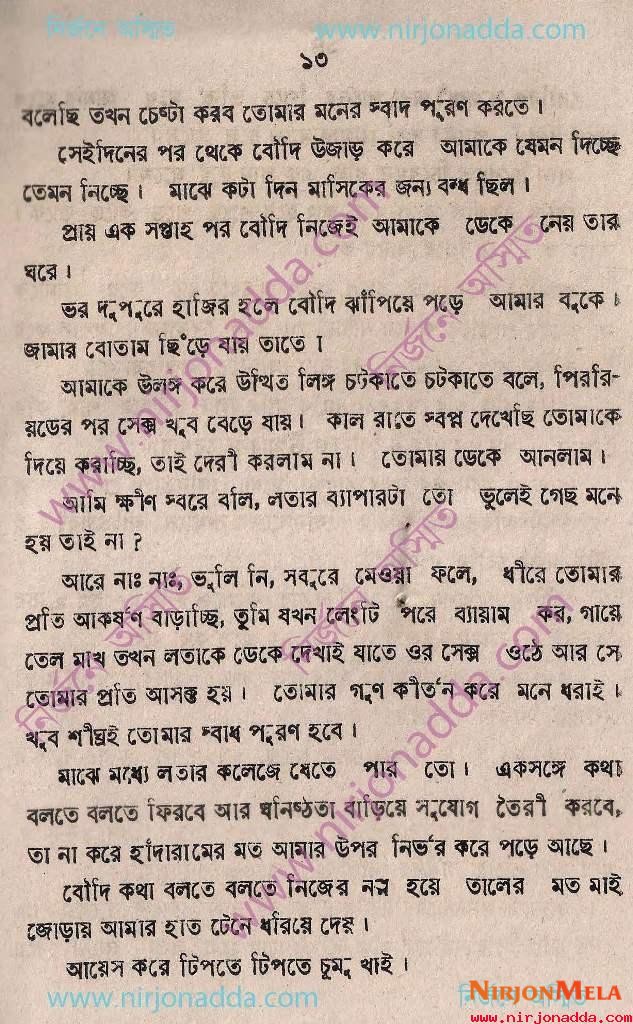 নির্জনে অস্মিত www.nirjonadda.com
১৩
বলেছি তখন চেষ্টা করব তোমার মনের স্বাদ পূরণ করতে।
সেইদিনের পর থেকে বৌদি উজাড় করে আমাকে যেমন দিচ্ছে
তেমন নিচ্ছে। মাঝে কটা দিন মাসিকের জন্য বন্ধ ছিল।
প্রায় এক সপ্তাহ পর বৌদি নিজেই আমাকে ডেকে নেয় তার
ঘরে।
ভর দুপুরে হাজির হলে বৌদি ঝাঁপিয়ে পড়ে আমার বুকে।
জামার বোতাম ছিঁড়ে যায় তাতে।
আমাকে উলঙ্গ করে উত্থিত লিঙ্গ চটকাতে চটকাতে বলে, পিরি-
য়ডের পর সেক্স খুব বেড়ে যায়। কাল রাতে স্বপ্ন দেখেছি তোমাকে
দিয়ে করাচ্ছি, তাই দেরী করলাম না। তোমায় ডেকে আনলাম।
আমি ক্ষীণ স্বরে বলি, লতার ব্যাপারটা তো ভুলেই গেছ মনে
হয় তাই না?
আরে নাঃ নাঃ, ভুলি নি, সবুরে মেওয়া ফলে, ধীরে তোমার
প্রতি আকর্ষণ বাড়াচ্ছি, তুমি যখন লেংটি পরে ব্যায়াম কর, গায়ে
তেল মাখ তখন লতাকে ডেকে দেখাই যাতে ওর সেক্স ওঠে আর সে
তোমার প্রতি আসক্ত হয়। তোমার গুণ কীর্তন করে মনে ধরাই।
খুব শীঘ্রই তোমার স্বাধ পূরণ হবে।
মাঝে মধ্যে লতার কলেজে যেতে পার তো। একসঙ্গে কথা
বলতে বলতে ফিরবে আর ঘনিষ্ঠতা বাড়িয়ে সুযোগ তৈরী করবে,
তা না করে হাঁদারামের মত আমার উপর নির্ভর করে পড়ে আছে।
বৌদি কথা বলতে বলতে নিজের নগ্ন হয়ে তালের মত মাই
জোড়ায় আমার হাত টেনে ধরিয়ে দেয়।
আয়েস করে টিপতে টিপতে চুমু খাই।
www.nirjonadda.com
NIRJONMELA
www.nirjonadda.com